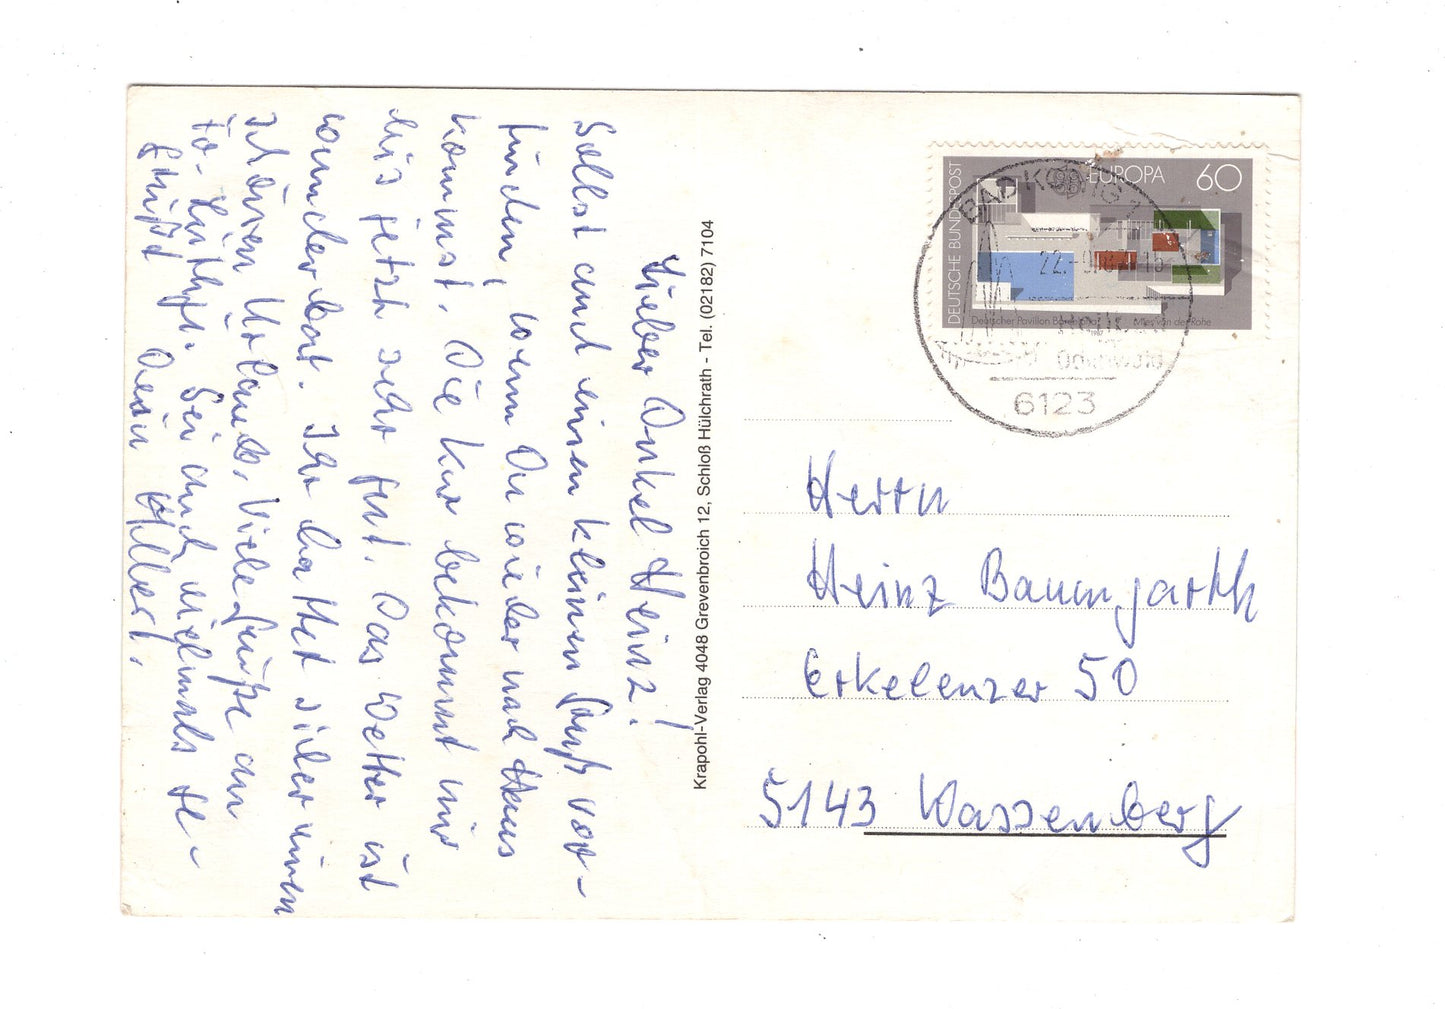 Lieber Onkel Heinz!
Sollst auch einen kleinen Gruß vor-
finden, wenn Du wieder nach Haus
kommst. Die Kur bekommt mir
bis jetzt sehr gut. Das Wetter ist
wunderbar. Ihr hattet sicher einen
schönen Urlaub. Viele Grüße an
Sei auch vielmals ge-
grüßt Dein Albert.
Krapohl-Verlag 4048 Grevenbroich 12, Schloß Hülchrath - Tel. (02182) 7104
DEUTSCHE BUNDESPOST
EUROPA 60
Deutscher Pavillon Barcelona Mies van der Rohe
BAD KÖNIG 1
22.-9.
Odenwald
6123
Herrn
Heinz Baumgarth
Erkelenzer 50
5143 Wassenberg